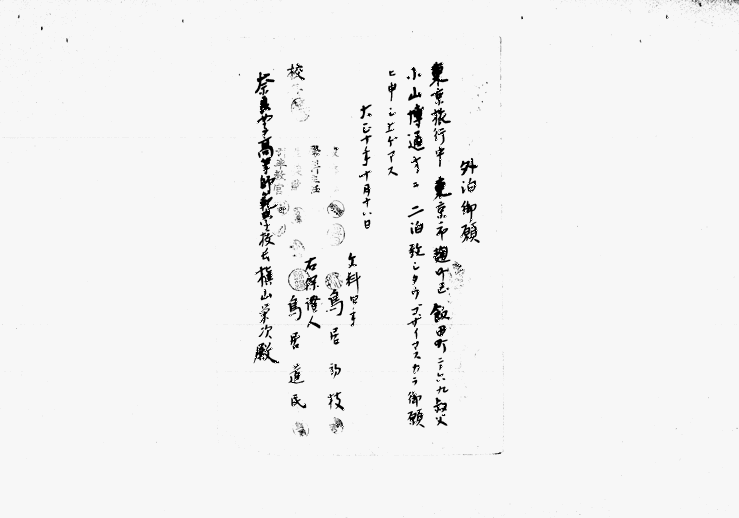 外泊御願
東京旅行中東京市麹町区飯田町二ノ六九叔父
小山博通方ニ二泊致シタウゴザイマスカラ御願
ヒ申シ上ゲマス
大正十年十月十八日
文科四年
鳥居初枝
右保證人
鳥居道民
校
奈良女子高等師範学校長槇山栄次殿